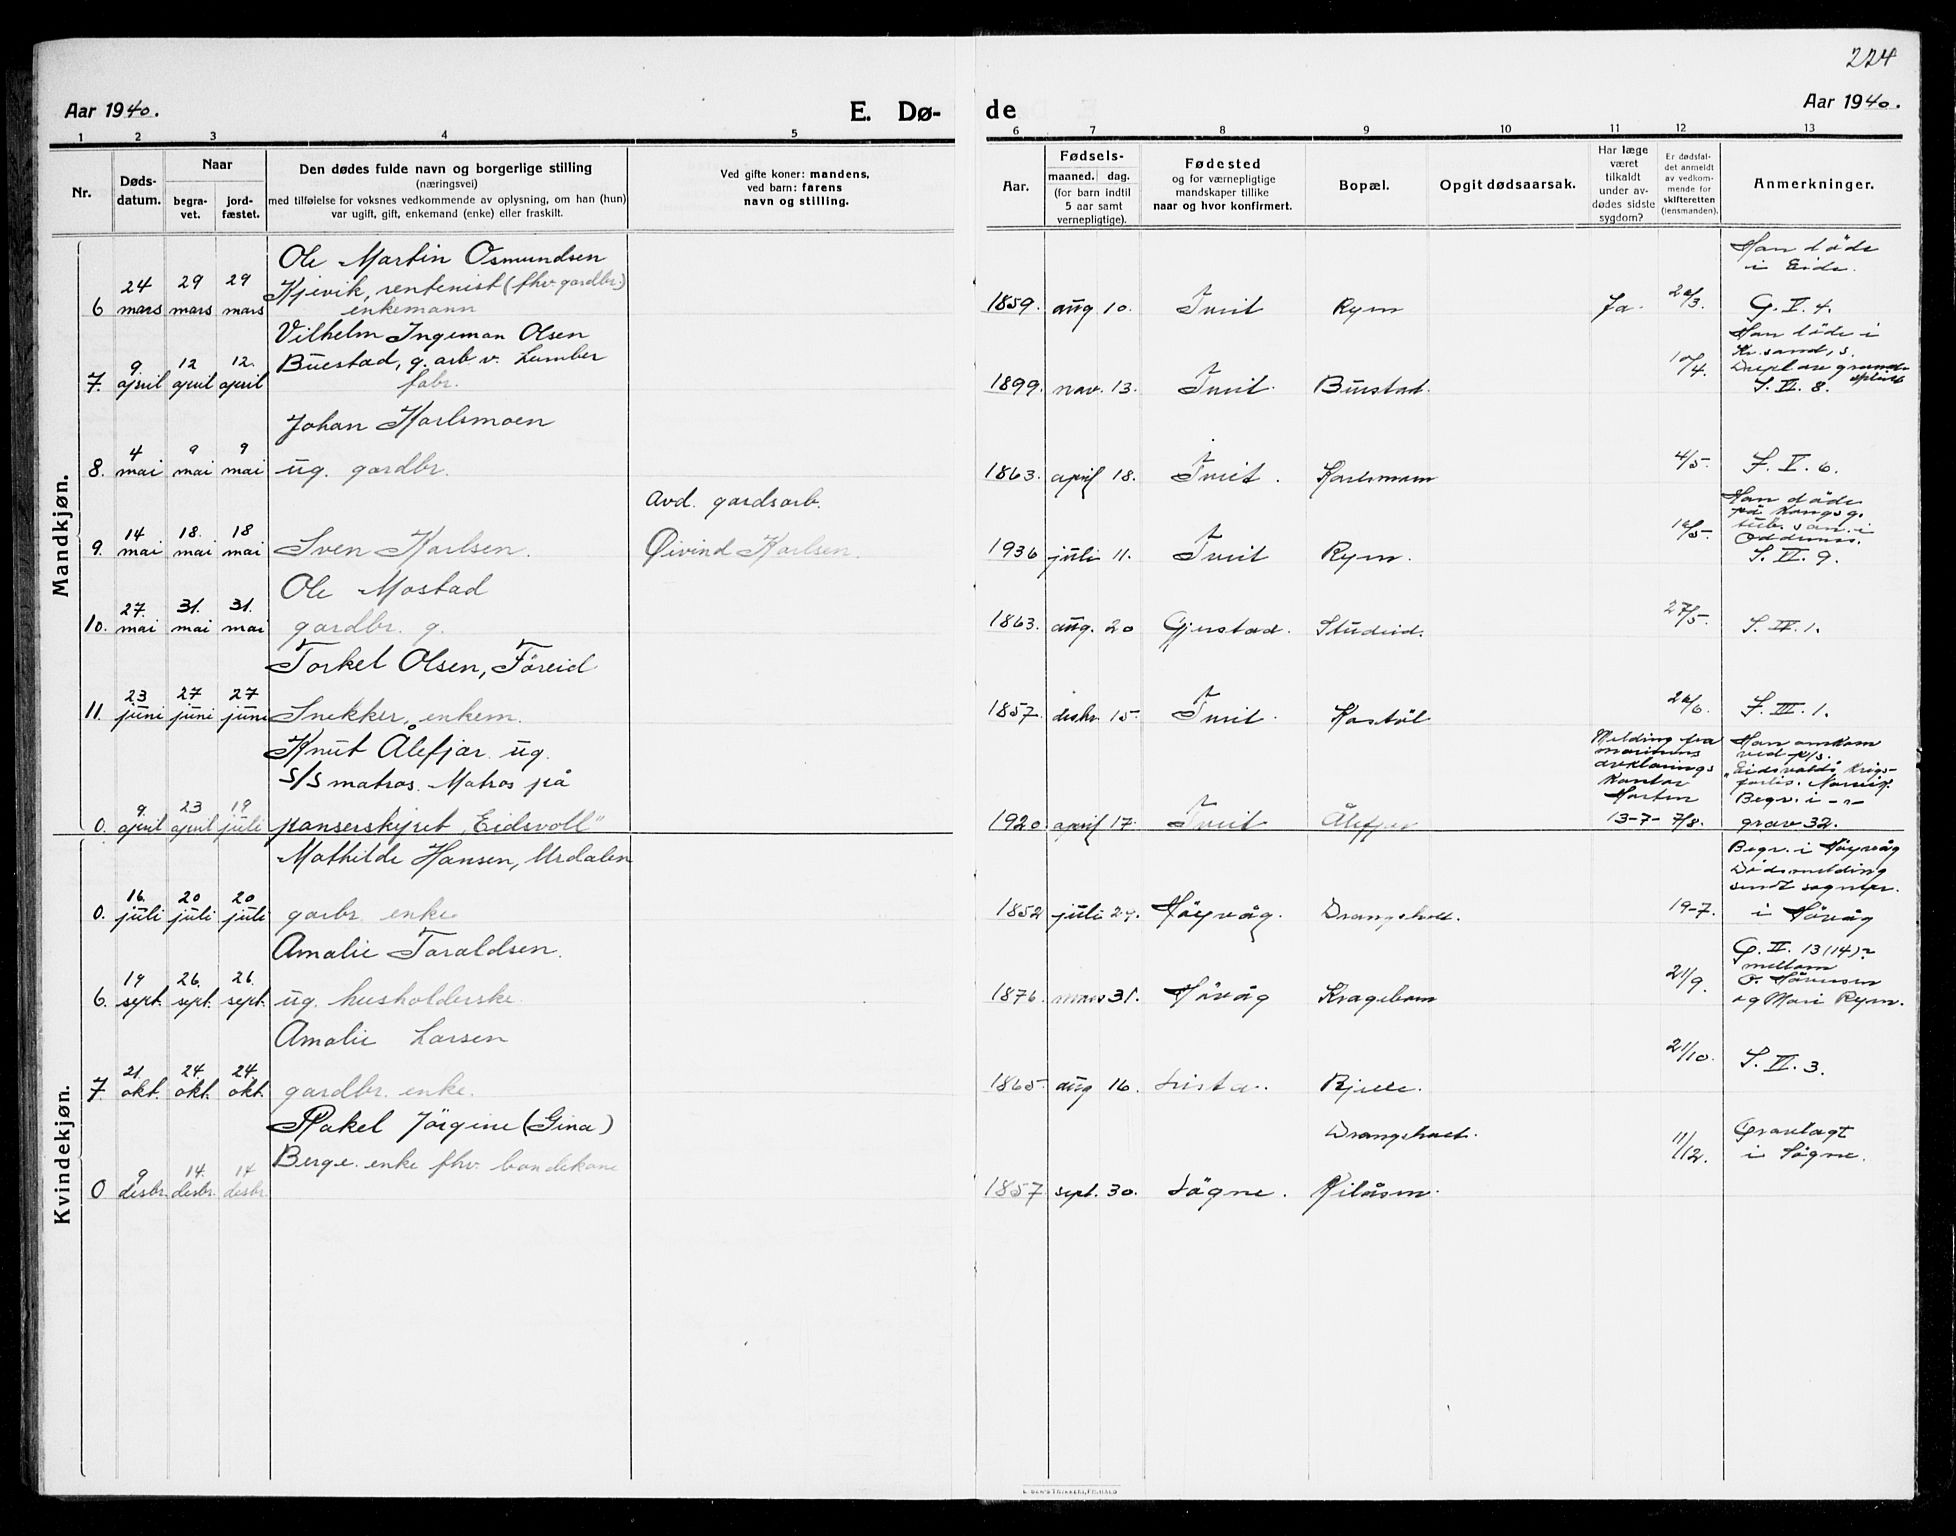 224
Aar 1940.
E. Dø-
de
Aar 1940.
1 2 3 4 5 6 7 8 9 10 11 12 13
Nr.
Døds-
datum.
Naar
begra-
vet.
jord-
fæstet.
Den dødes fulde navn og borgerlige stilling
(næringsvei)
med tilføielse for voksnes vedkommende av oplysning, om han (hun)
var ugift, gift, enkemand (enke) eller fraskilt.
Ved gifte koner: mandens,
ved barn: farens
navn og stilling.
Aar.
Fødsels-
maaned. dag.
(for barn indtil
5 aar samt
vernepligtige).
Fødested
og for værnepligtige
mandskaper tillike
naar og hvor konfirmert.
Bopæl.
Opgit dødsaarsak.
Har læge
været
tilkaldt
under av-
dødes sidste
sygdom?
Er dødsfal-
det anmeldt
av vedkom-
mende for
skifteretten
(lensmanden).
Anmerkninger.
Mandkjøn.
Ole Martin Osmundsen
Kjevik, rentenist (fhv. gardbr.)
enkemann
6 24 mars 29 mars 29 mars
1859. aug 10. Tveit Ryen Ja. 26/3.
Han döde
i Eide.
G. V. 4.
Vilhelm Ingeman Olsen
Buestad, g. arb. v. Lumber
fabr.
7. 9. april 12 april 12. april
1899. nov. 13. Tveit Buestad. 10/4.
Han döde i
Kr.sand, s.
Drept av granat-
splint
S. VI. 8.
Johan Karlsmoen
8. 4 mai 9 mai 9 mai ug. gardbr.
1863. april 18. Tveit. Karlsmoen 4/5. F. V. 6.
Avd. gardsarb.
9. 14 mai 18. mai 18 mai Sven Karlsen. Øivind Karlsen.
1936 juli 11. Tveit Ryen. 16/5.
Han döde
på Kongsg.
tub. san. i
Oddernes.
S. VI. 9.
Ole Mostad
10. 27. mai 31. mai 31. mai gardbr. g.
1863. aug. 20 Gjerstad. Studeid. 27/5. S. IV. 1.
Torkel Olsen, Föreid
11. 23 juni 27 juni 27 juni Snekker, enkem.
1857. desbr. 15. Tveit. Kostöl 26/6. F. III. 1.
Knut Ålefjær ug.
S/S matros. Matros på
0. 9. april 23 april 19 juli panserskipet "Eidsvoll"
1920. april 17. Tveit Ålefjær
Melding fra
marinens
avklarings
kontor
Horten
13-7- 7/8.
Han omkom
ved p/s.
"Eidsvold's krigs-
forlis. Narvik.
Begr. i -"-
grav 32.
Kvindekjøn.
Mathilde Hansen, Urdalen
0. 16. juli 20 juli 20 juli garbr. enke
1852 juli 27. Höyvåg. Drangsholt. 19-7.
Begr. i Höyvåg
Dödsmelding
sendt sogneprr.
i Hövåg
Amalie Taraldsen.
6. 19 sept. 26. sept. 26. sept. ug. husholderske.
1876. mars 31. Hövåg Krageboen 21/9.
G. II. 13 (14)?
mellom
O. Sörensen
og Mari Ryen.
Amalie Larsen
7 21. okt. 24. okt. 24. okt. gardbr. enke.
1865. aug 16. Lista. 21/10. S. VI. 3.
Rakel Jörgine (Gina)
Berge. enke fhv. bondekone
0 9 desbr. 14. desbr. 14 desbr.
1857 sept. 30. Sögne.
Drangsholt.
Kilåsen.
11/12.
Gravlagt
i Sögne.